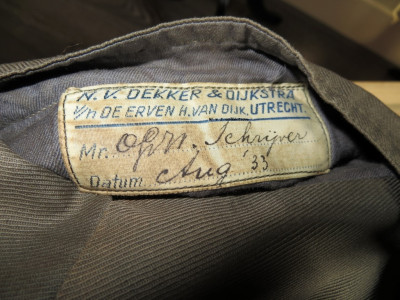 N.V. DEKKER & DIJKSTRA
V/H DE ERVEN H. VAN DIJK. UTRECHT
Mr. Schrijver
Datum Aug '33